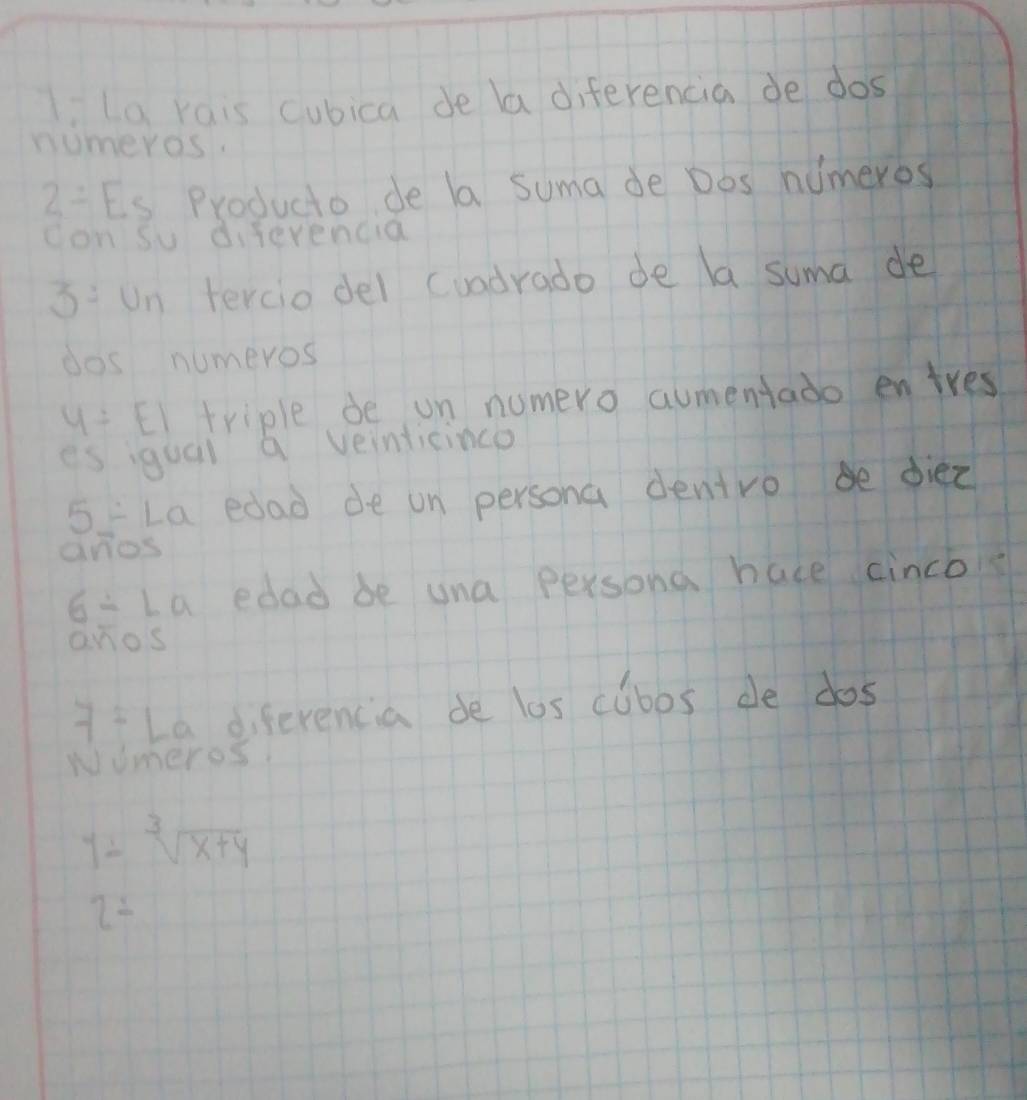 1= La rais cubica de la diferencia de dos
números.
2= Es Producto de la suma de Dos números
con su diferencia
3= un tercio del cuadrado de la suma de
dos numeros
4= El triple de un numero aumentado en tres
es igual a veinticinco
5= La edad de un persona dentro de diez
años
6= La edad de una persona hace cinco
años
7= La diferencia de los cúbos de dos
Números.
1= ∛x+y
2=